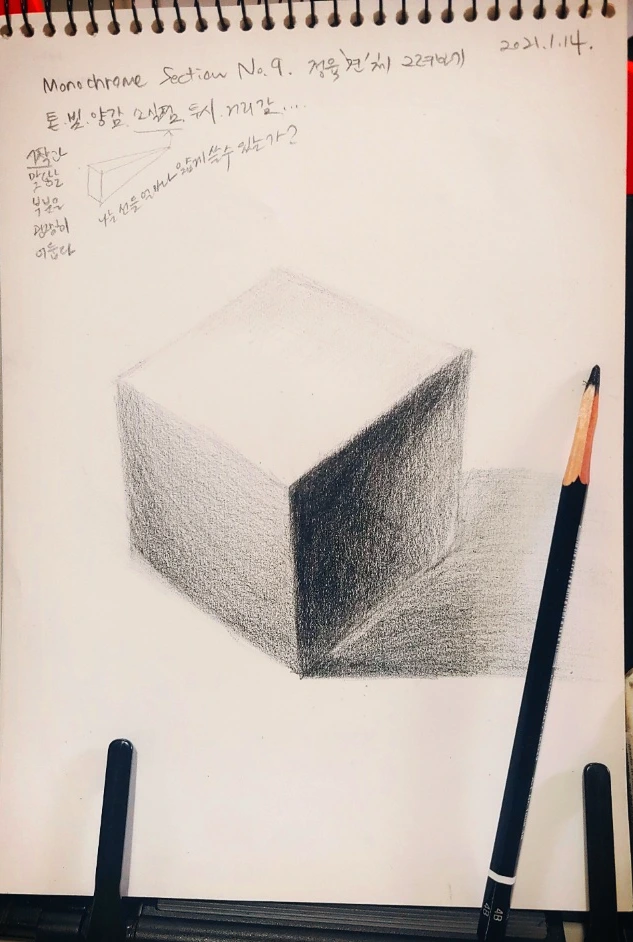 Monochrome Section No.9. 정육'면'체 그려보기
2021.1.14.
톤. 빛. 양감. 소실점. 투시. 거리감....
맞닿는
부분은
굉장히
어둡다
나는 선을 얼마나 얇게 쓸 수 있는가?
4B
4B